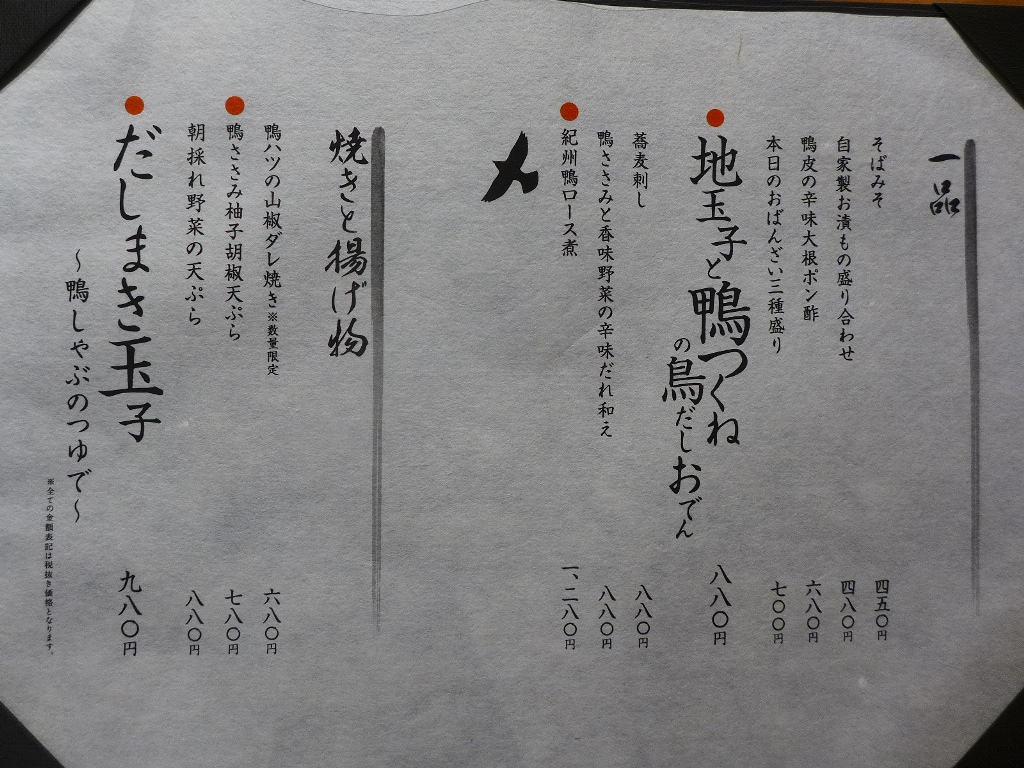 一品
そばみそ
四五〇円
自家製お漬もの盛り合わせ
四八〇円
鴨皮の辛味大根ポン酢
六八〇円
本日のおばんざい三種盛り
七〇〇円
地玉子と鴨つくね
の鳥だしおでん
八八〇円
蕎麦刺し
八八〇円
鴨ささみと香味野菜の辛味だれ和え
八八〇円
紀州鴨ロース煮
一、二八〇円
焼きと揚げ物
鴨ハツの山椒ダレ焼き※数量限定
六八〇円
鴨ささみ柚子胡椒天ぷら
七八〇円
朝採れ野菜の天ぷら
八八〇円
だしまき玉子
九八〇円
～鴨しゃぶのつゆで～
※全ての金額表記は税抜き価格となります。